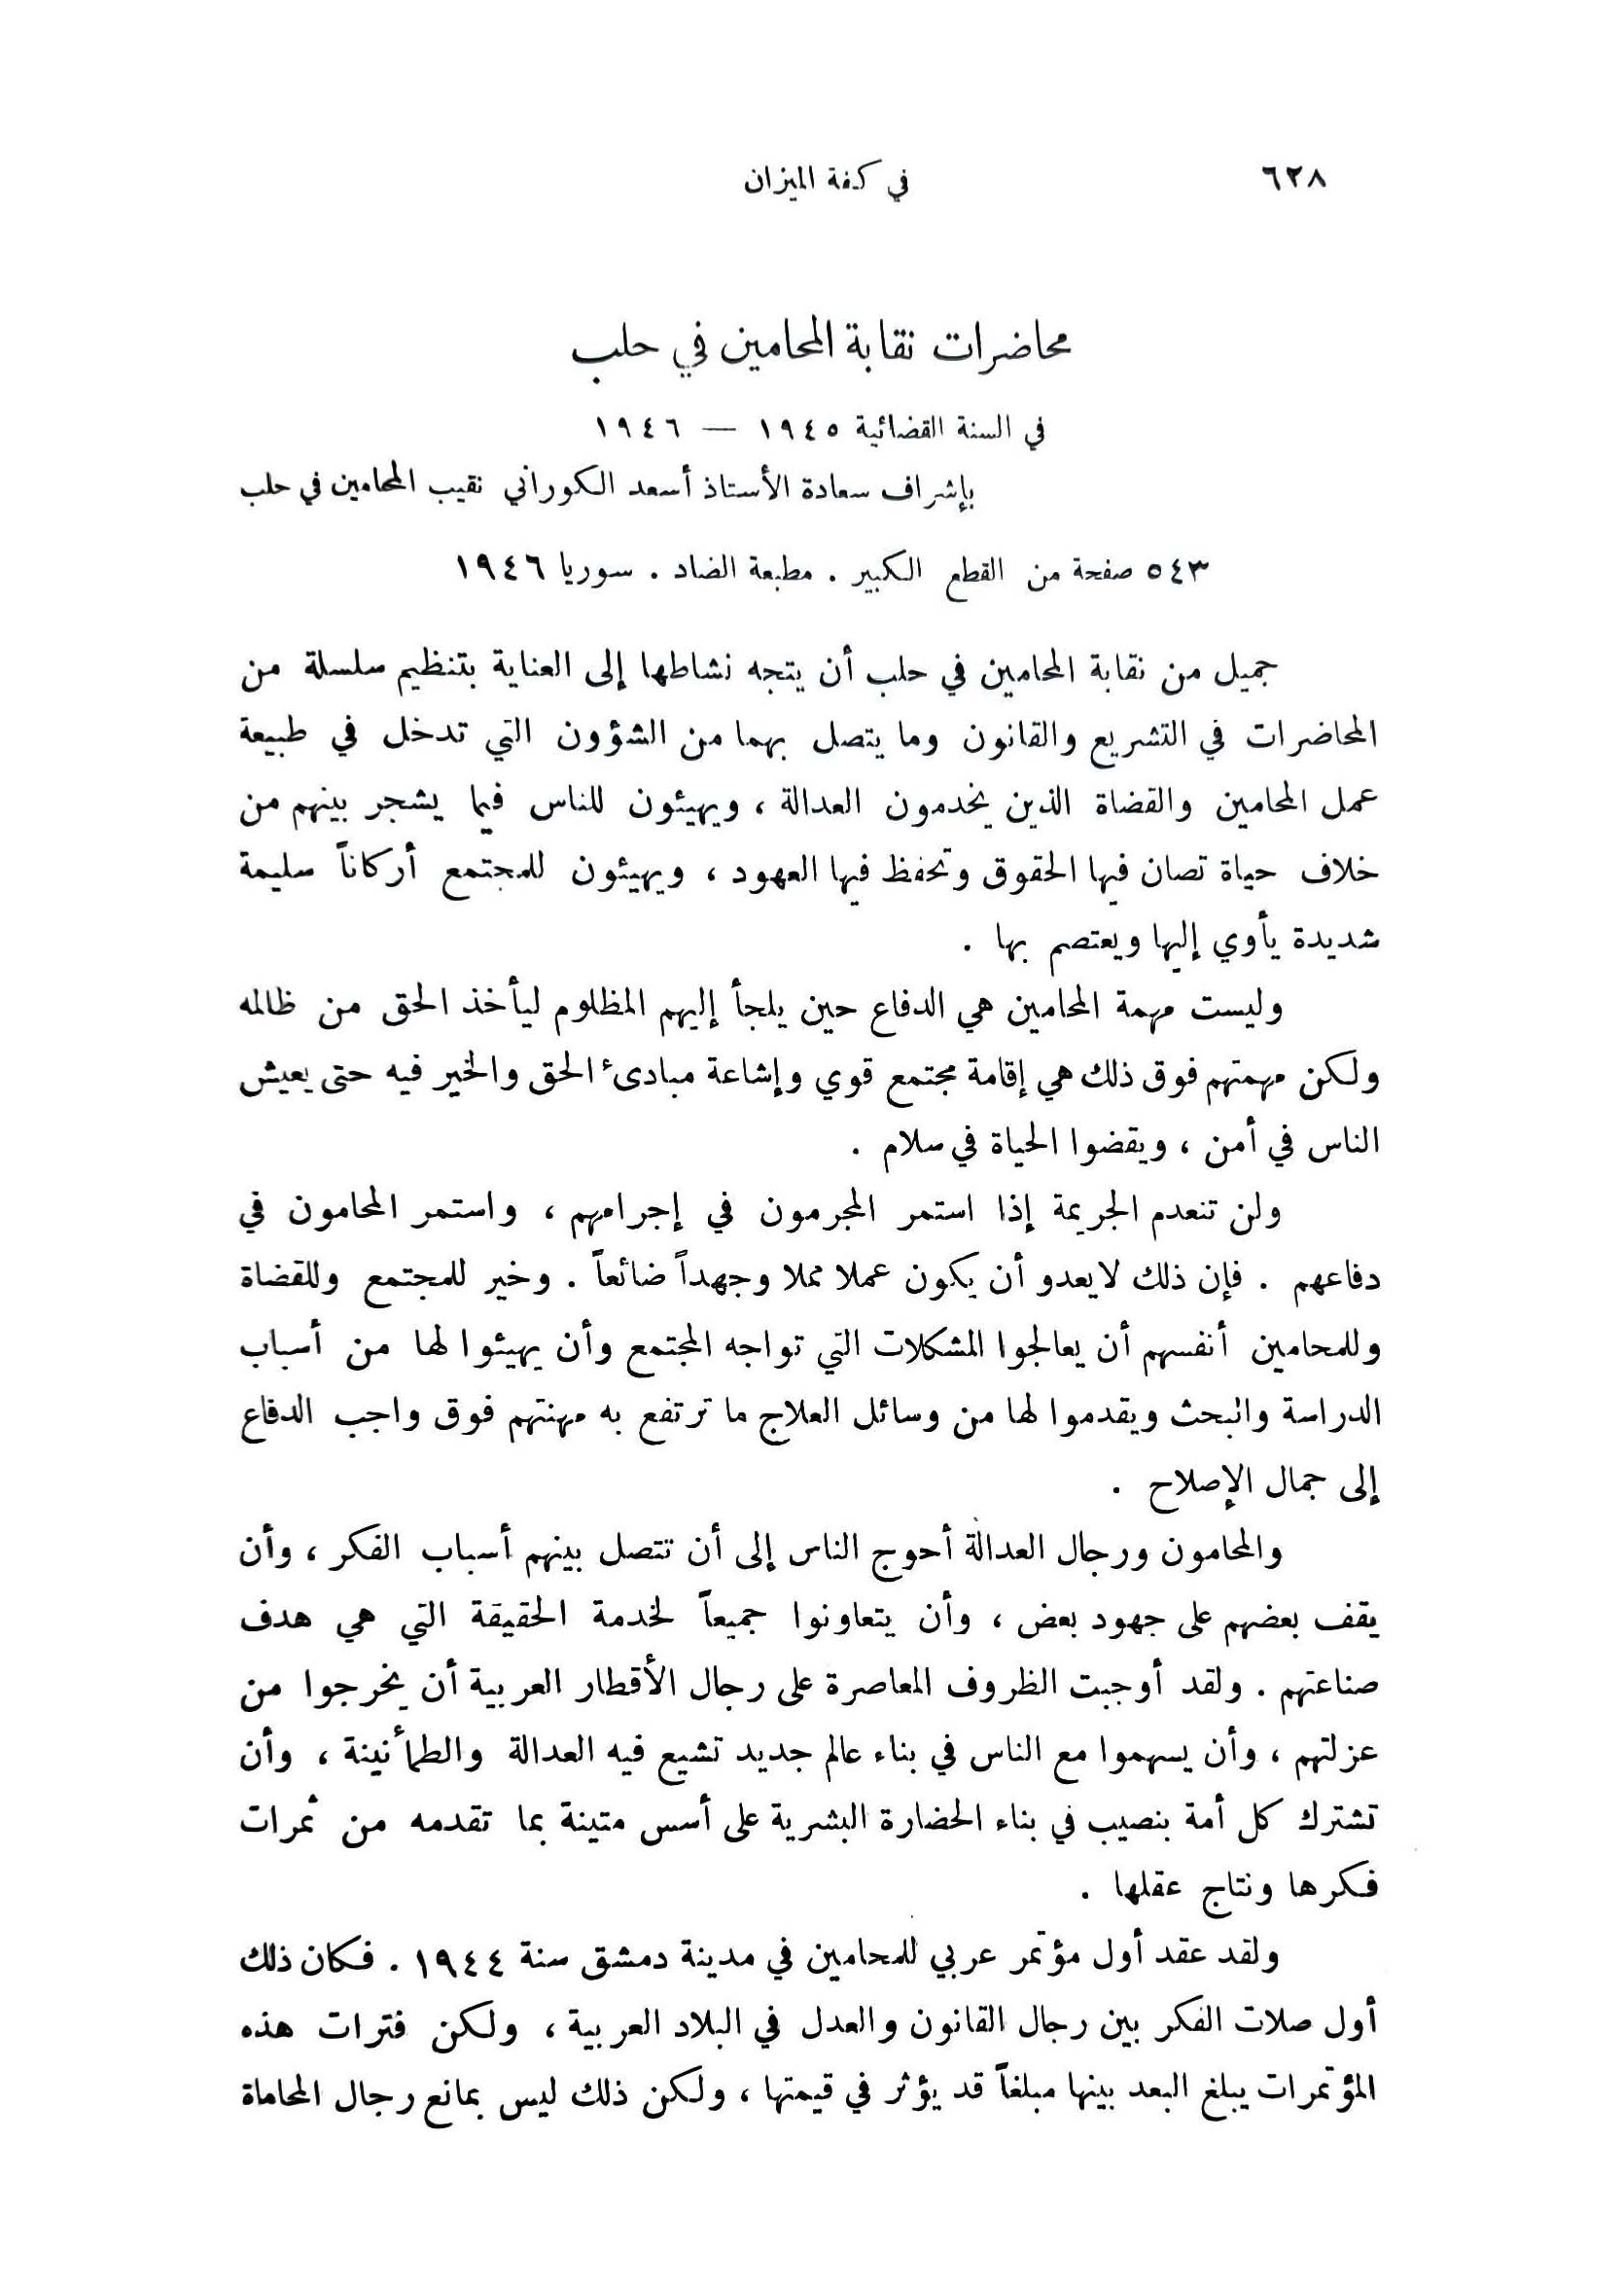 ٦٢٨
في كفة الميزان
محاضرات نقابة المحامين في حلب
في السنة القضائية ١٩٤٥ — ١٩٤٦
بإشراف سعادة الأستاذ أسعد الكوراني نقيب المحامين في حلب
٥٤٣ صفحة من القطع الكبير . مطبعة الضاد . سوريا ١٩٤٦
جميل من نقابة المحامين في حلب أن يتجه نشاطها إلى العناية بتنظيم سلسلة من
المحاضرات في التشريع والقانون وما يتصل بهما من الشؤون التي تدخل في طبيعة
عمل المحامين والقضاة الذين يخدمون العدالة ، ويهيئون للناس فيما يشجر بينهم من
خلاف حياة تصان فيها الحقوق وتحفظ فيها العهود ، ويهيئون للمجتمع أركاناً سليمة
شديدة يأوي إليها ويعتصم بها .
وليست مهمة المحامين هي الدفاع حين يلجأ إليهم المظلوم ليأخذ الحق من ظالمه
ولكن مهمتهم فوق ذلك هي إقامة مجتمع قوي وإشاعة مبادئ الحق والخير فيه حتى يعيش
الناس في أمن ، ويقضوا الحياة في سلام .
ولن تنعدم الجريمة إذا استمر المجرمون في إجرامهم ، واستمر المحامون في
دفاعهم . فإن ذلك لا يعدو أن يكون عملا مملا وجهداً ضائعاً . وخير للمجتمع وللقضاة
وللمحامين أنفسهم أن يعالجوا المشكلات التي تواجه المجتمع وأن يهيئوا لها من أسباب
الدراسة والبحث ويقدموا لها من وسائل العلاج ما ترتفع به مهنتهم فوق واجب الدفاع
إلى جمال الإصلاح .
والمحامون ورجال العدالة أحوج الناس إلى أن تتصل بينهم أسباب الفكر ، وأن
يقف بعضهم على جهود بعض ، وأن يتعاونوا جميعاً لخدمة الحقيقة التي هي هدف
صناعتهم . ولقد أوجبت الظروف المعاصرة على رجال الأقطار العربية أن يخرجوا من
عزلتهم ، وأن يسهموا مع الناس في بناء عالم جديد تشيع فيه العدالة والطمأنينة ، وأن
تشترك كل أمة بنصيب في بناء الحضارة البشرية على أسس متينة بما تقدمه من ثمرات
فكرها ونتاج عقلها .
ولقد عقد أول مؤتمر عربي للمحامين في مدينة دمشق سنة ١٩٤٤ . فكان ذلك
أول صلات الفكر بين رجال القانون والعدل في البلاد العربية ، ولكن فترات هذه
المؤتمرات يبلغ البعد بينها مبلغاً قد يؤثر في قيمتها ، ولكن ذلك ليس بمانع رجال المحاماة